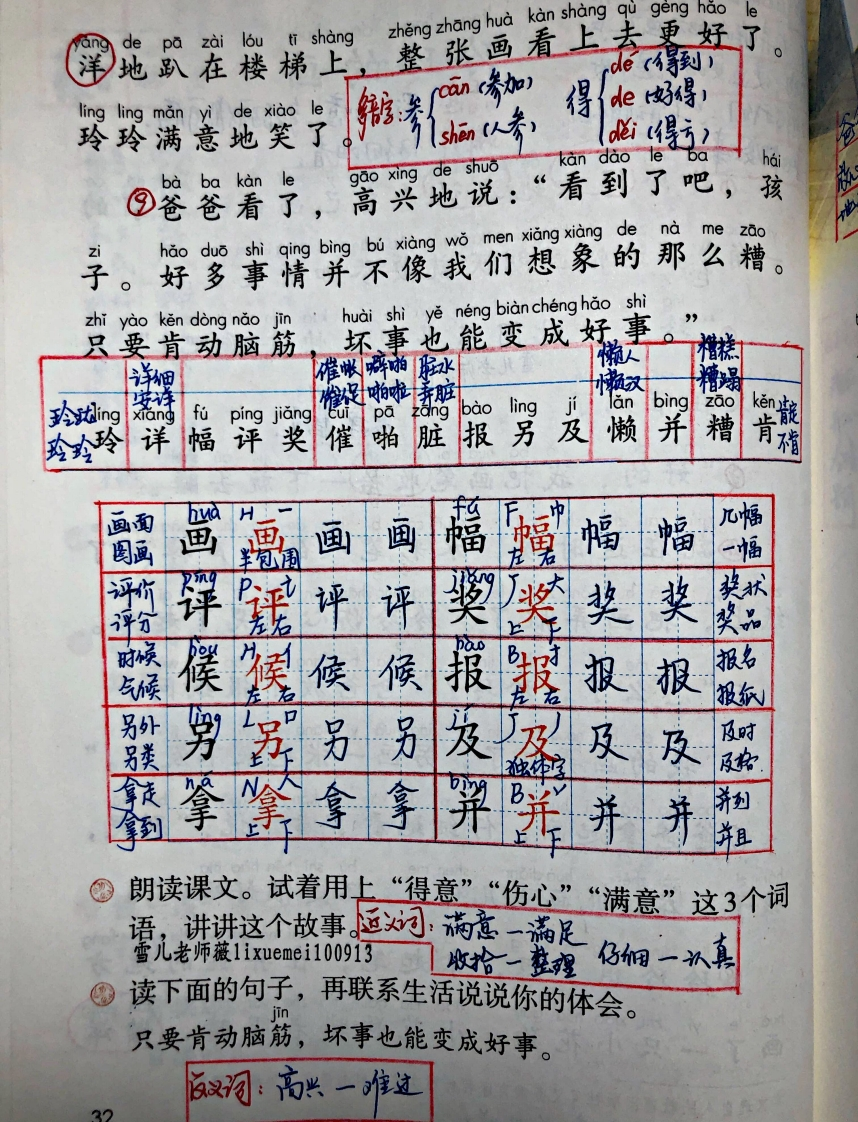 yāng de pā zài lóu tī shàng zhěng zhāng huà kàn shàng qù gèng hǎo le
洋地趴在楼梯上，整张画看上去更好了。
多音字：参 cān（参加） shēn（人参） 得 dé（得到） de（好得） děi（得亏）
líng ling mǎn yì de xiào le
玲玲满意地笑了。
bà ba kàn le gāo xìng de shuō kàn dào le ba hái
⑨爸爸看了，高兴地说：“看到了吧，孩
zi hǎo duō shì qing bìng bú xiàng wǒ men xiǎng xiàng de nà me zāo
子。好多事情并不像我们想象的那么糟。
zhǐ yào kěn dòng nǎo jīn huài shì yě néng biàn chéng hǎo shì
只要肯动脑筋，坏事也能变成好事。”
详细 催账 噼啪 脏水 懒人 糟糕
安详 催促 啪啦 弄脏 懒汉 糟蹋
玲珑 líng xiáng fú píng jiǎng cuī pā zāng bào lìng jí lǎn bìng zāo kěn 肯定
玲玲 玲 详 幅 评 奖 催 啪 脏 报 另 及 懒 并 糟 肯 不肯
画面 huà H 一 fú F 巾 几幅
图画 画 画 画 画 幅 幅 幅 幅 一幅
半包围 左右
评价 píng P 讠 jiǎng J 大 奖状
评分 评 评 评 评 奖 奖 奖 奖 奖品
左右 上下
时候 hòu H 亻 bào B 扌 报名
气候 候 候 候 候 报 报 报 报 报纸
左右 左右
另外 lìng L 口 jí J 丿 及时
另类 另 另 另 另 及 及 及 及 及格
上下 独体字
拿走 ná N 人 bìng B 丷 并列
拿到 拿 拿 拿 拿 并 并 并 并 并且
上下 上下
朗读课文。试着用上“得意”“伤心”“满意”这3个词
语，讲讲这个故事。
近义词：满意—满足
收拾—整理 仔细—认真
雪儿老师薇lixuemei100913
读下面的句子，再联系生活说说你的体会。
jīn
只要肯动脑筋，坏事也能变成好事。
反义词：高兴—难过
32